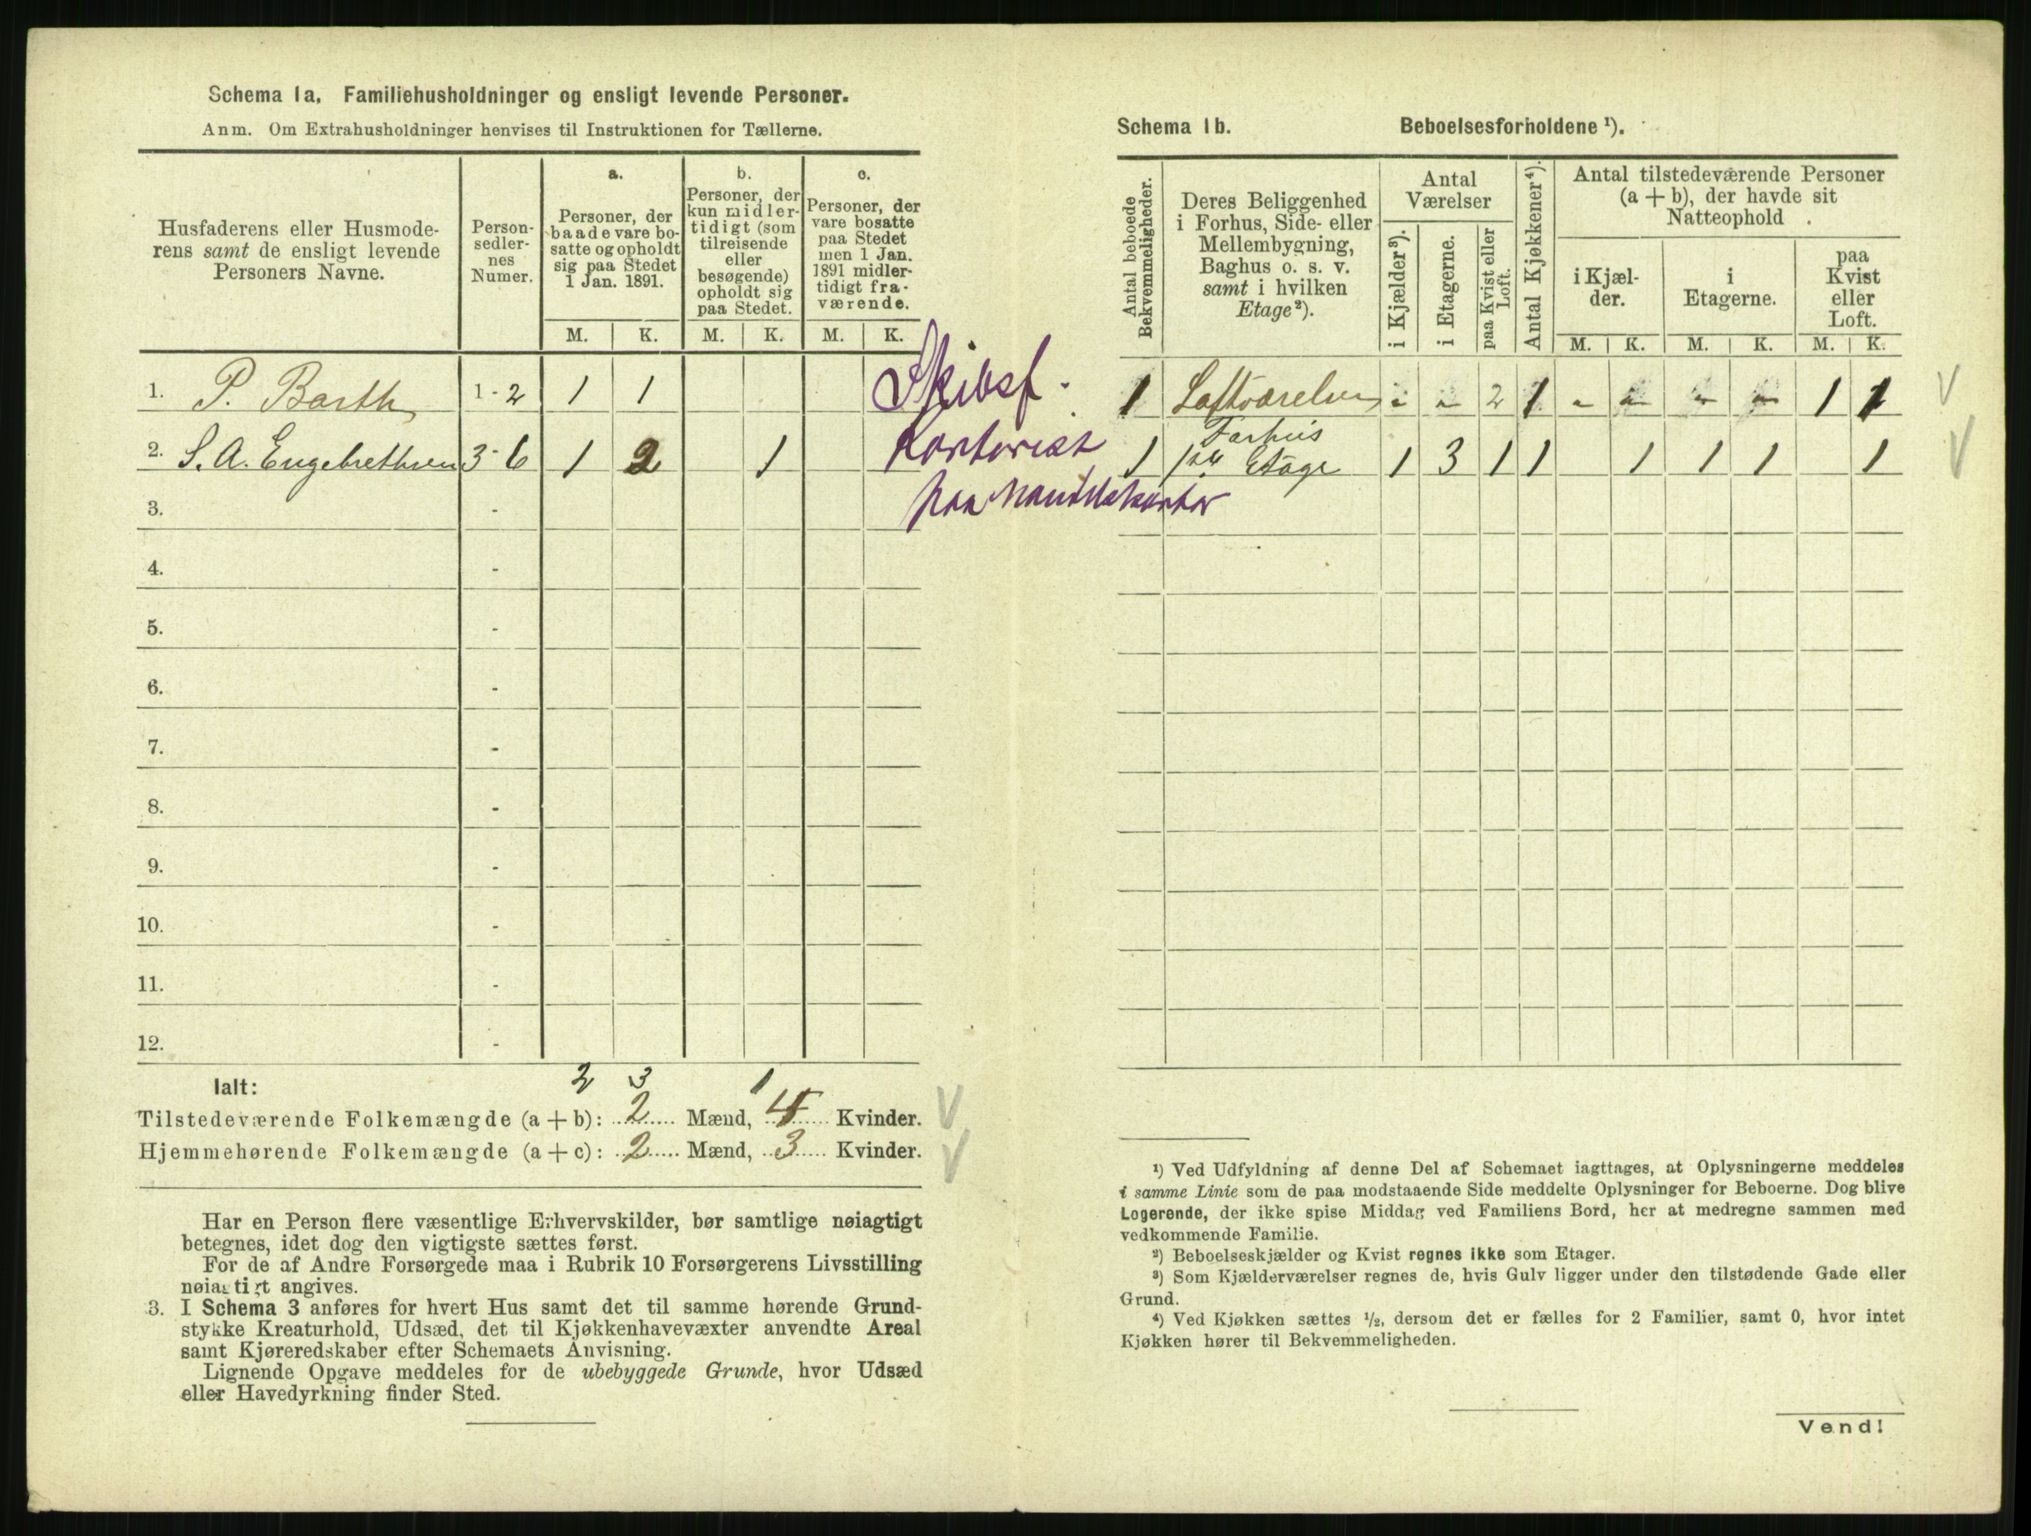 Schema 1a. Familiehusholdninger og ensligt levende Personer.
Anm. Om Extrahusholdninger henvises til Instruktionen for Tællerne.
Husfaderens eller Husmode-
rens samt de ensligt levende
Personers Navne.
Person-
sedler-
nes
Numer.
a.
Personer, der
baade vare bo-
satte og opholdt
sig paa Stedet
1 Jan. 1891.
b.
Personer, der
kun midler-
tidigt (som
tilreisende
eller
besøgende)
opholdt sig
paa Stedet.
c.
Personer, der
vare bosatte
paa Stedet
men 1 Jan.
1891 midler-
tidigt fra-
værende.
M. K. M. K. M. K.
1. P. Barth 1-2 1 1 Skibsf.
2. S. A. Engebrethsen 3-6 1 2 1 Kontorist
paa Handelskontor
3. -
4. -
5. -
6. -
7. -
8. -
9. -
10. -
11. -
12. -
Ialt: 2 3 1
Tilstedeværende Folkemængde (a+b): 2 Mænd, 4 Kvinder. V
Hjemmehørende Folkemængde (a+c): 2 Mænd, 3 Kvinder. V
Har en Person flere væsentlige Erhvervskilder, bør samtlige nøiagtigt
betegnes, idet dog den vigtigste sættes først.
For de af Andre Forsørgede maa i Rubrik 10 Forsørgerens Livsstilling
nøiagtigt angives.
3. I Schema 3 anføres for hvert Hus samt det til samme hørende Grund-
stykke Kreaturhold, Udsæd, det til Kjøkkenhavevæxter anvendte Areal
samt Kjøreredskaber efter Schemaets Anvisning.
Lignende Opgave meddeles for de ubebyggede Grunde, hvor Udsæd
eller Havedyrkning finder Sted.
Schema 1b. Beboelsesforholdene ¹).
Antal beboede
Bekvemmeligheder.
Deres Beliggenhed
i Forhus, Side- eller
Mellembygning,
Baghus o. s. v.
samt i hvilken
Etage²).
Antal
Værelser
i Kjælder³).
i Etagerne.
paa Kvist eller
Loft.
Antal Kjøkkener⁴).
Antal tilstedeværende Personer
(a + b), der havde sit
Natteophold
i Kjæl-
der.
i
Etagerne.
paa
Kvist
eller
Loft.
M. K. M. K. M. K.
1 Loftværelser - - 2 1 - - - - 1 1 V
Forhus
1 1ste Etage 1 3 1 1 1 1 1 1 V
¹) Ved Udfyldning af denne Del af Schemaet iagttages, at Oplysningerne meddeles
i samme Linie som de paa modstaaende Side meddelte Oplysninger for Beboerne. Dog blive
Logerende, der ikke spise Middag ved Familiens Bord, her at medregne sammen med
vedkommende Familie.
²) Beboelseskjælder og Kvist regnes ikke som Etager.
³) Som Kjælderværelser regnes de, hvis Gulv ligger under den tilstødende Gade eller
Grund.
⁴) Ved Kjøkken sættes ½, dersom det er fælles for 2 Familier, samt 0, hvor intet
Kjøkken hører til Bekvemmeligheden.
Vend!